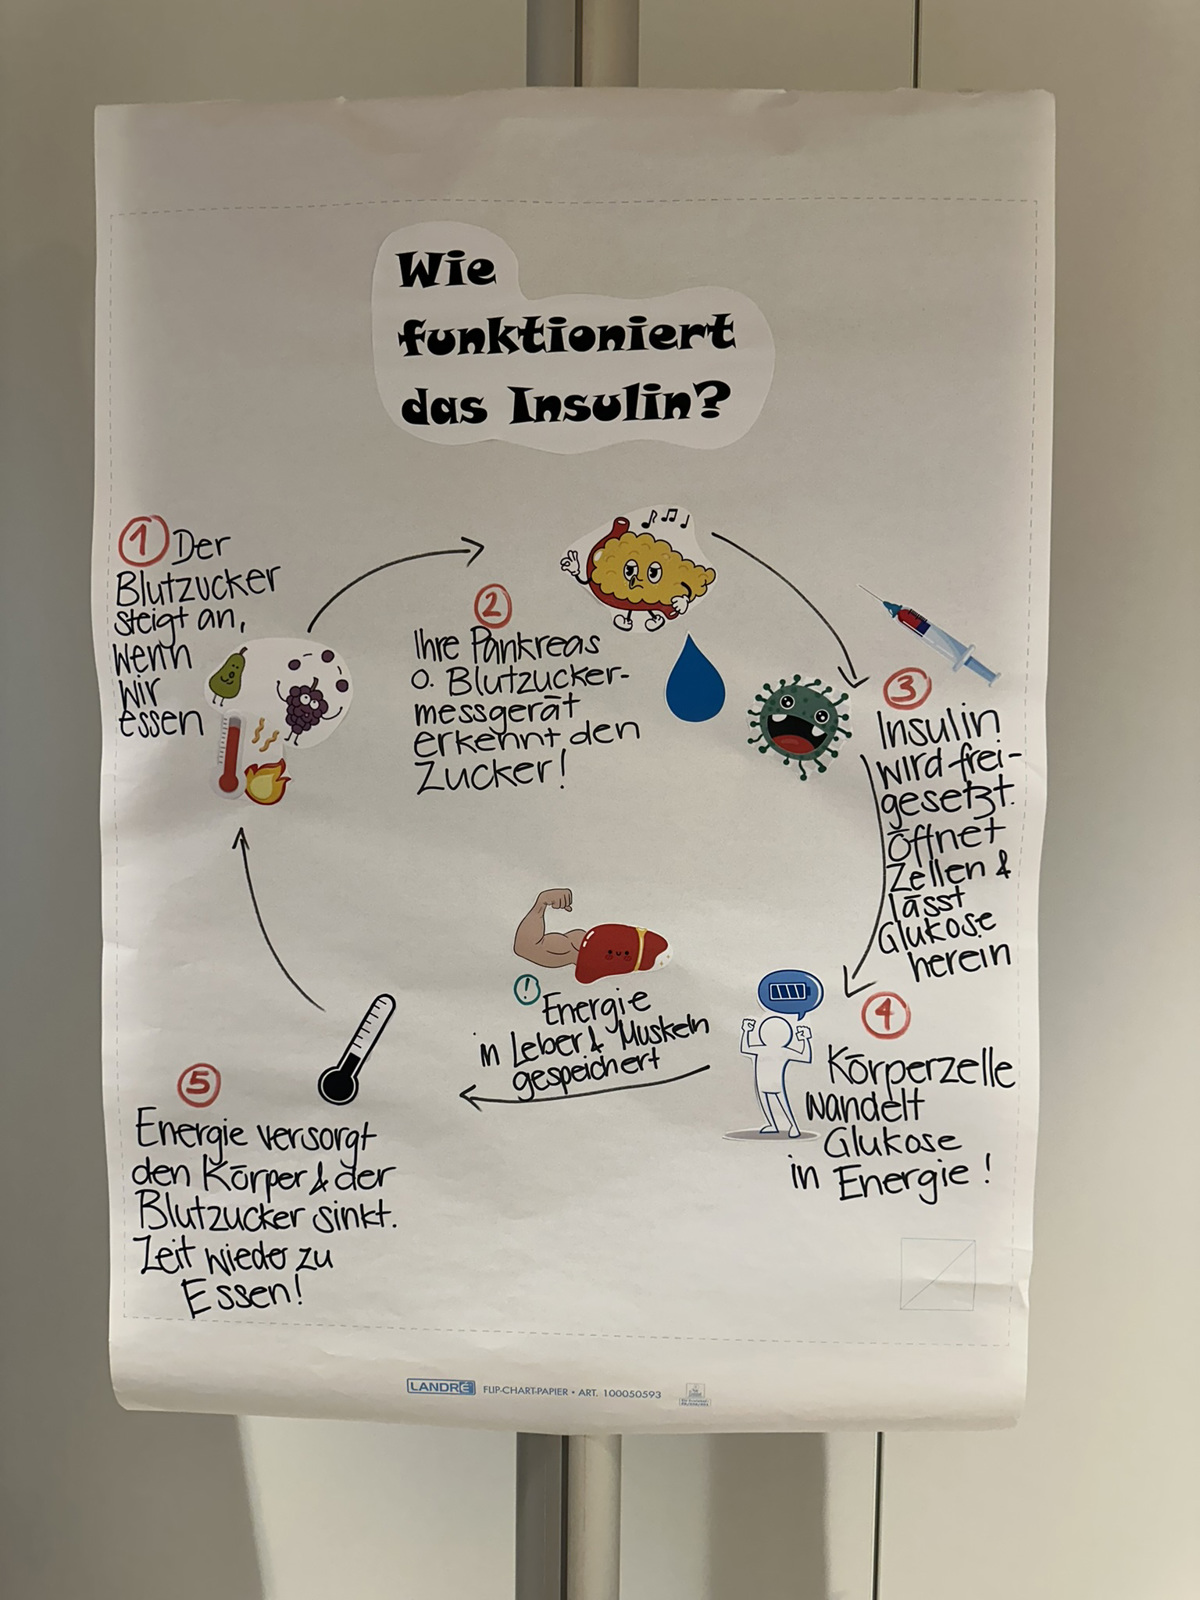 Wie
funktioniert
das Insulin?
1 Der
Blutzucker
steigt an,
wenn
wir
essen
2
Ihre Pankreas
o. Blutzucker-
messgerät
erkennt den
Zucker!
3
Insulin
wird frei-
gesetzt.
Öffnet
Zellen &
lässt
Glukose
herein
4
Körperzelle
wandelt
Glukose
in Energie!
! Energie
in Leber & Muskeln
gespeichert
5
Energie versorgt
den Körper & der
Blutzucker sinkt.
Zeit wieder zu
Essen!
LANDRÉ FLIP-CHART-PAPIER • ART. 100050593